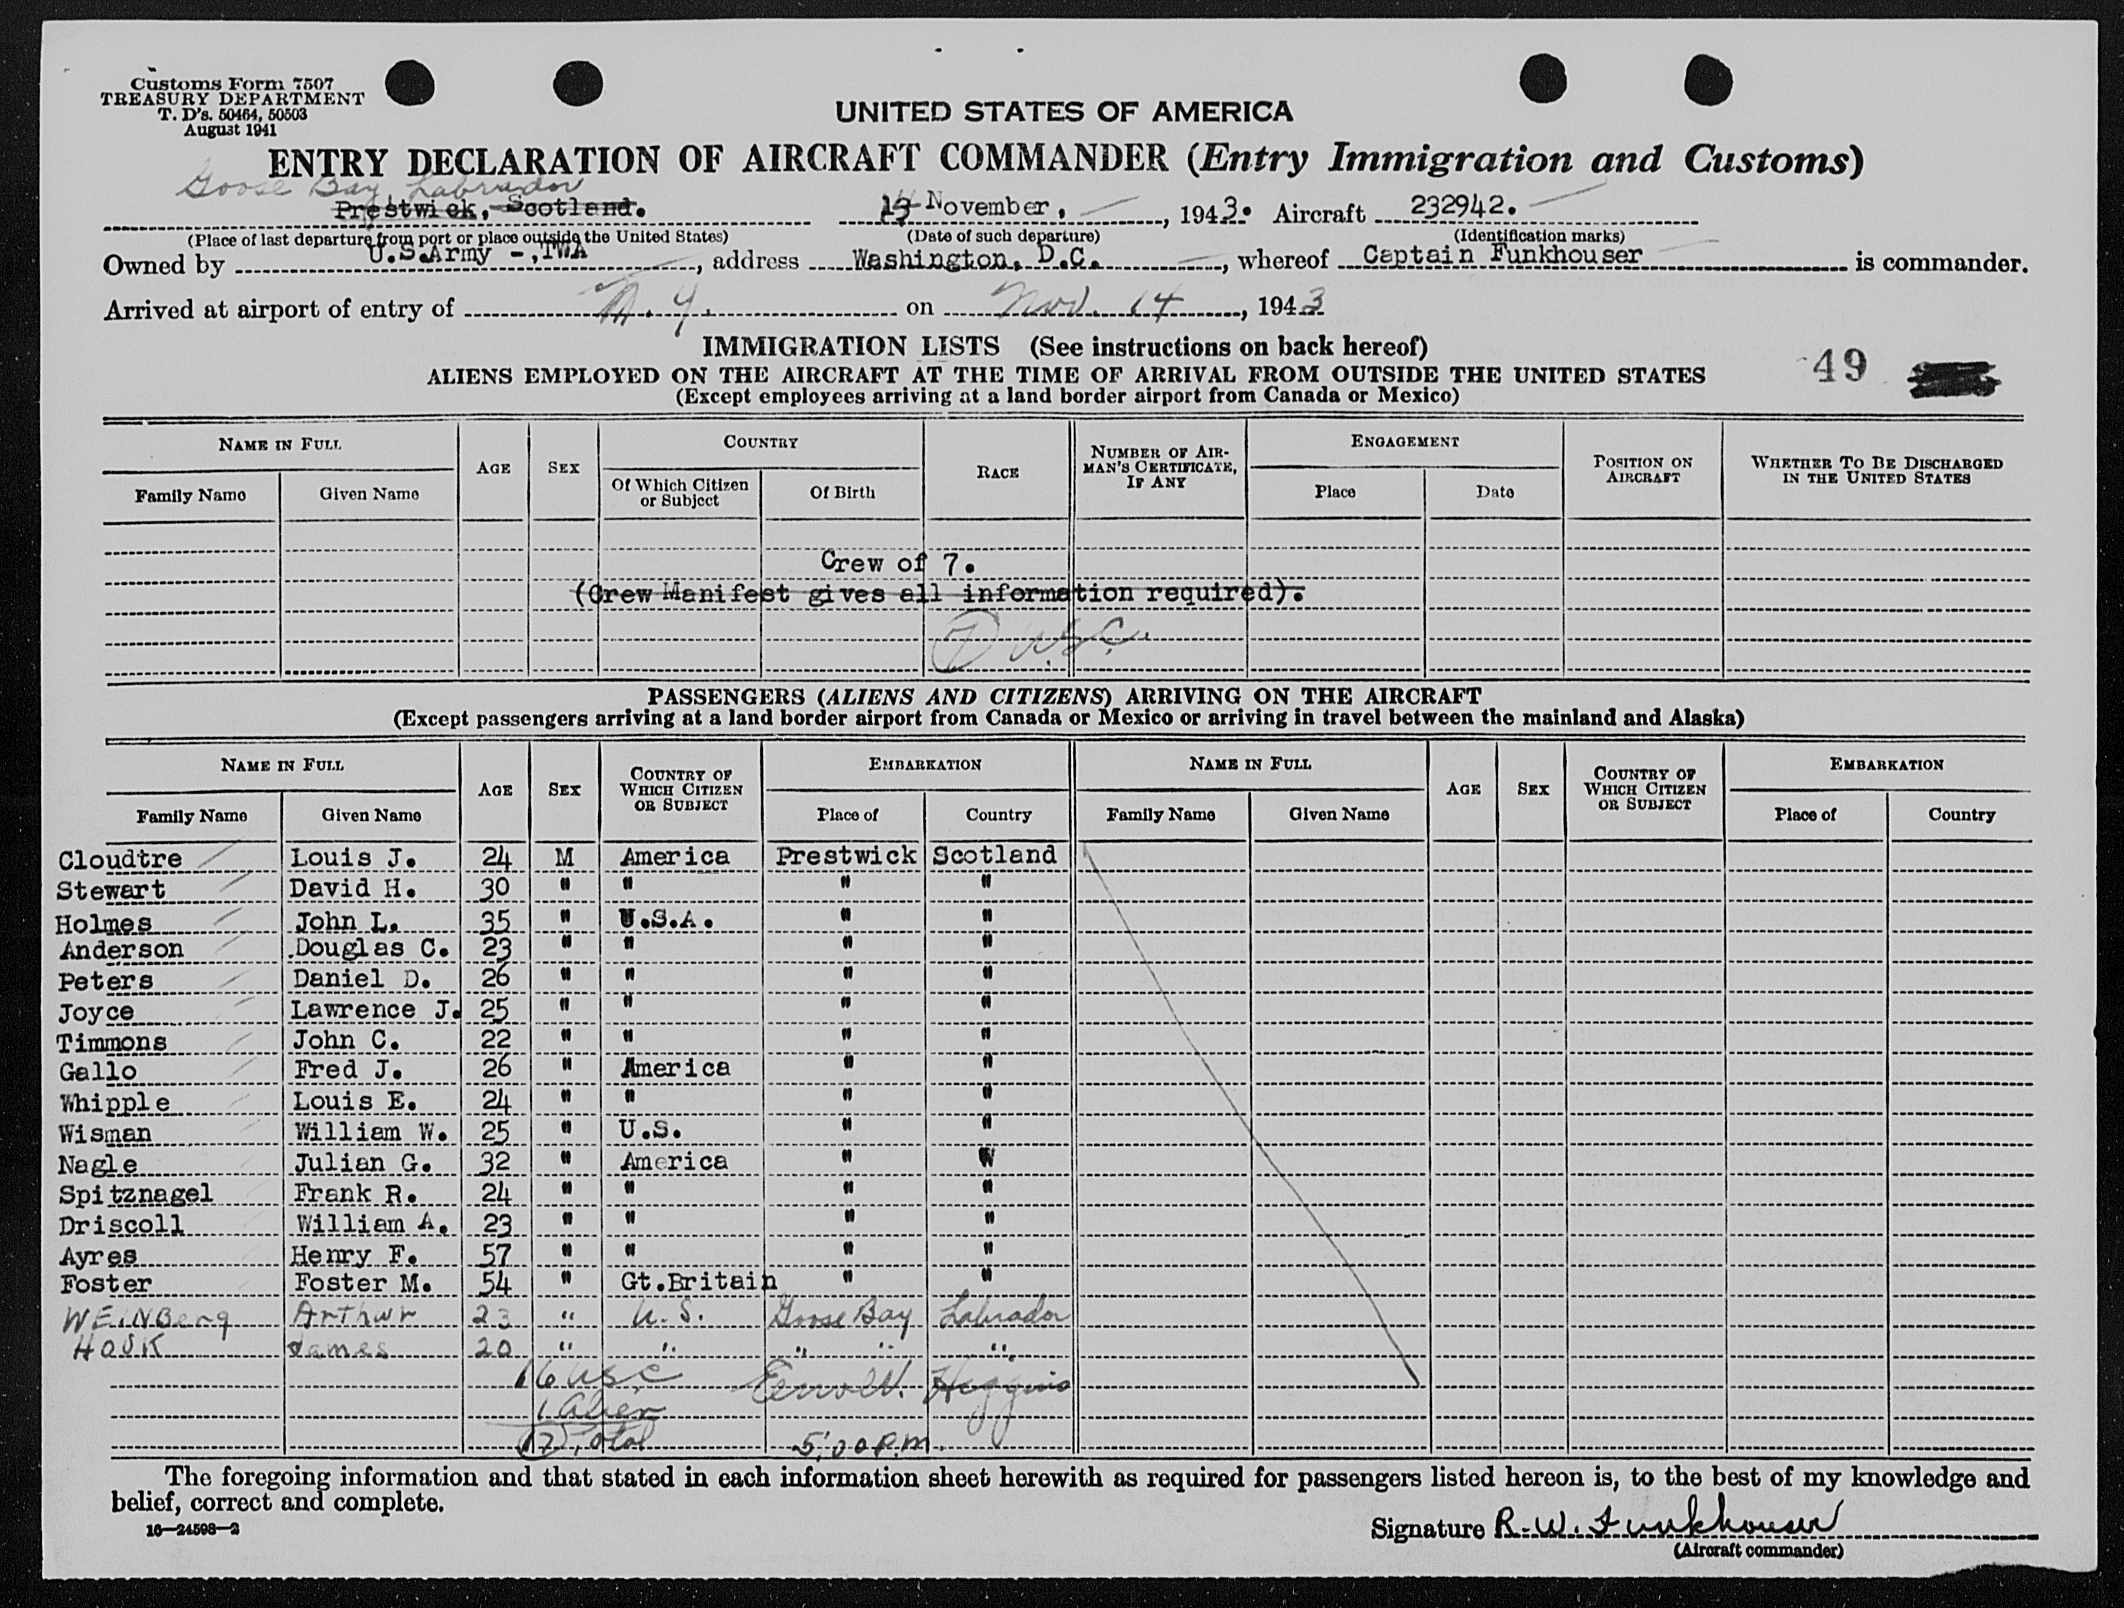 Customs Form 7507
TREASURY DEPARTMENT
T. D's. 50464, 50503
August 1941
UNITED STATES OF AMERICA
ENTRY DECLARATION OF AIRCRAFT COMMANDER (Entry Immigration and Customs)
Goose Bay, Labrador
Prestwick, Scotland. November, 1943. Aircraft 232942.
(Place of last departure from port or place outside the United States) (Date of such departure) (Identification marks)
Owned by U.S.Army -,TWA, address Washington, D.C., whereof Captain Funkhouser is commander.
Arrived at airport of entry of N.Y. on Nov. 14, 1943
IMMIGRATION LISTS (See instructions on back hereof)
49
ALIENS EMPLOYED ON THE AIRCRAFT AT THE TIME OF ARRIVAL FROM OUTSIDE THE UNITED STATES
(Except employees arriving at a land border airport from Canada or Mexico)
NAME IN FULL AGE SEX COUNTRY RACE NUMBER OF AIRMAN'S CERTIFICATE, IF ANY ENGAGEMENT POSITION ON AIRCRAFT WHETHER TO BE DISCHARGED IN THE UNITED STATES
Family Name Given Name Of Which Citizen or Subject Of Birth Place Date
Crew of 7.
(Crew Manifest gives all information required).
7 U.S.C.
PASSENGERS (ALIENS AND CITIZENS) ARRIVING ON THE AIRCRAFT
(Except passengers arriving at a land border airport from Canada or Mexico or arriving in travel between the mainland and Alaska)
NAME IN FULL AGE SEX COUNTRY OF WHICH CITIZEN OR SUBJECT EMBARKATION NAME IN FULL AGE SEX COUNTRY OF WHICH CITIZEN OR SUBJECT EMBARKATION
Family Name Given Name Place of Country Family Name Given Name Place of Country
Cloudtre Louis J. 24 M America Prestwick Scotland
Stewart David H. 30 " " " "
Holmes John L. 35 " U.S.A. " "
Anderson Douglas C. 23 " " " "
Peters Daniel D. 26 " " " "
Joyce Lawrence J. 25 " " " "
Timmons John C. 22 " " " "
Gallo Fred J. 26 " America " "
Whipple Louis E. 24 " " " "
Wisman William W. 25 " U.S. " "
Nagle Julian G. 32 " America " "
Spitznagel Frank R. 24 " " " "
Driscoll William A. 23 " " " "
Ayres Henry F. 57 " " " "
Foster Foster M. 54 " Gt.Britain " "
WEINBerg Arthur 23 " U.S. Goose Bay Labrador
HOUK James 20 " " " " "
16 USC Higgins
1 Alien
17 Total 5:00 P.M.
The foregoing information and that stated in each information sheet herewith as required for passengers listed hereon is, to the best of my knowledge and
belief, correct and complete.
16—24598-2
Signature R. W. Funkhouser
(Aircraft commander)